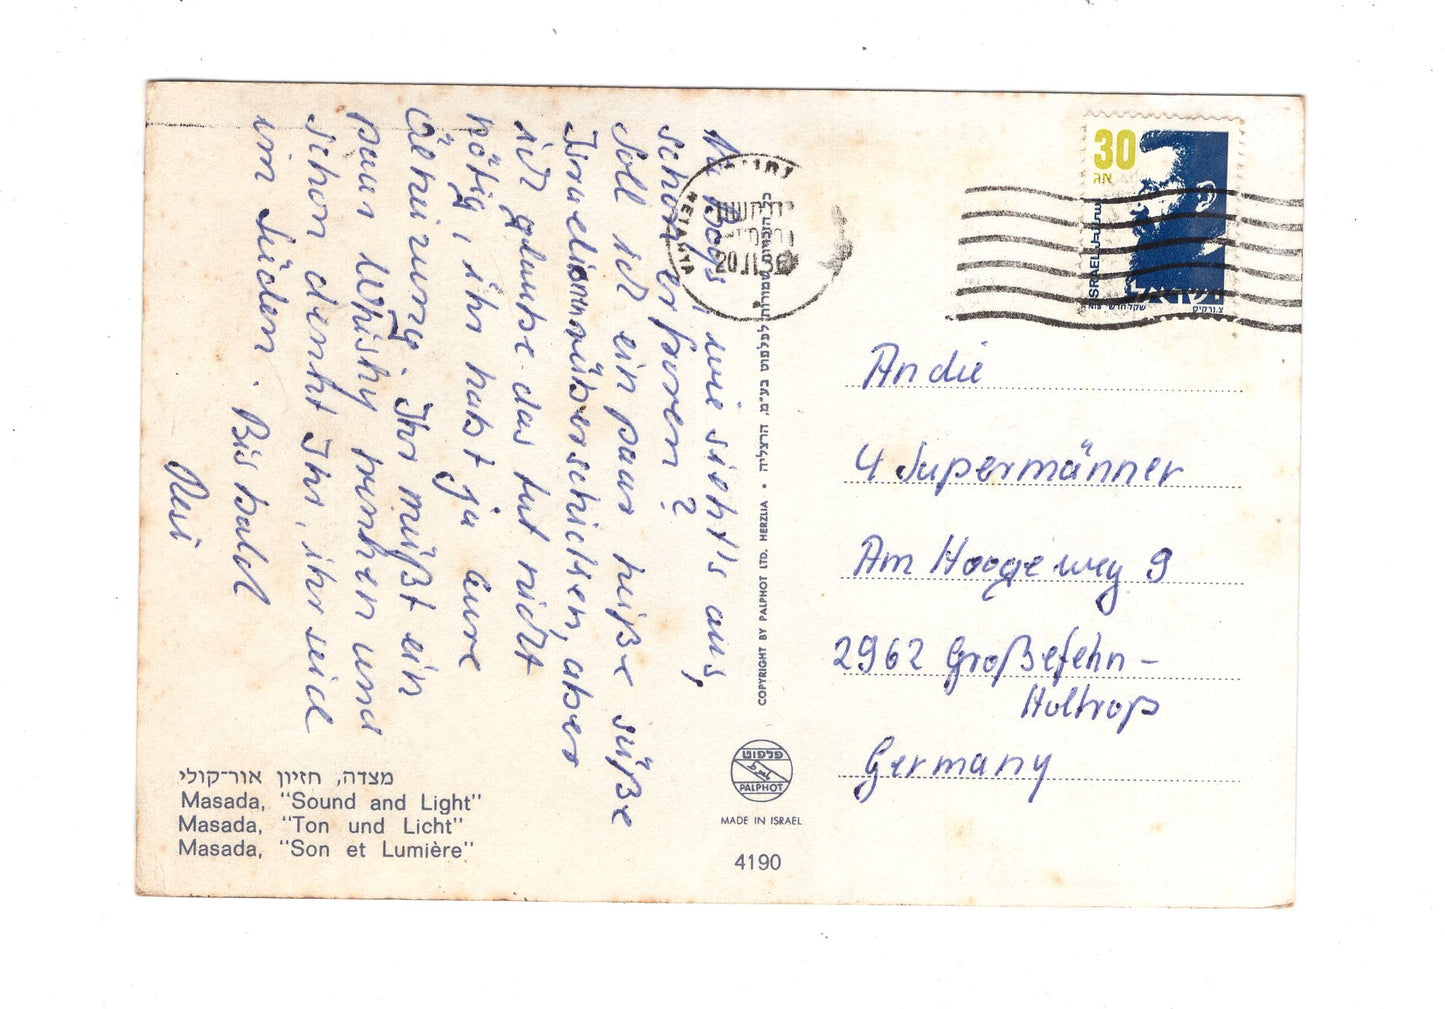 Na Boys, wie sieht's aus,
schon erfroren?
Soll ich ein paar heiße süße
Israelinnen rüberschicken, aber
ich glaube das tut nicht
nötig, ihr habt ja eure
Ährirung. Ihr müßt ein
paar Whisky trinken und
schon denkt Ihr, ihr seid
im Süden. Bis bald
מצדה, חזיון אור-קולי
Masada, "Sound and Light"
Masada, "Ton und Licht"
Masada, "Son et Lumière"
COPYRIGHT BY PALPHOT LTD. HERZLIA • כל הזכויות שמורות לפלפוט בע"מ, הרצליה
פלפוט
PALPHOT
MADE IN ISRAEL
4190
NETANYA
נתניה
30
אג
ISRAEL
ישראל
Andie
4 Supermänner
Am Hoogeweg 9
2962 Großefehn-
Holtrop
Germany